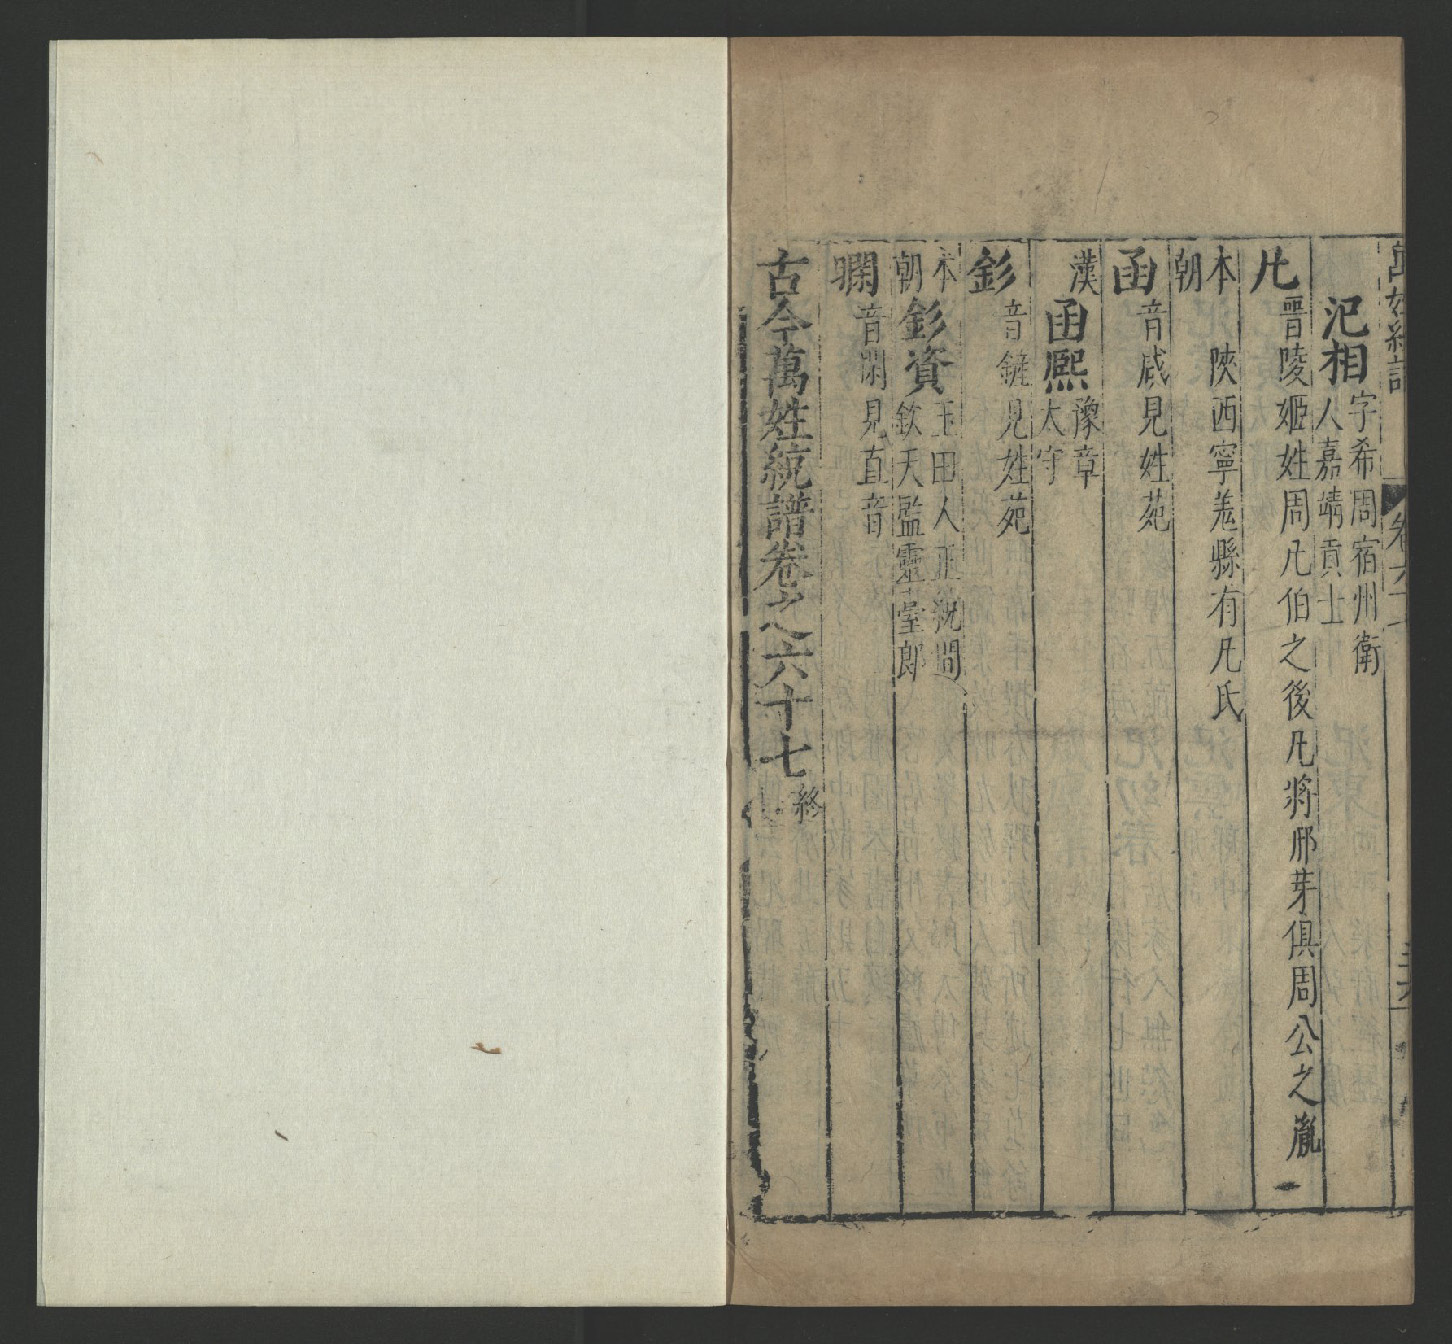 萬姓統譜 卷六十七
氾相 字希周宿州衛
人嘉靖貢士
凡 晋陵姬姓周凡伯之後凡將邢茅俱周公之胤
本朝 陝西寧羗縣有凡氏
函 音咸見姓苑
漢 函熈 豫章
太守
釤 音鏟見姓苑
本朝 釤資 玉田人正統間
欽天監靈臺郎
瞯 音閑見直音
古今萬姓統譜卷之六十七 終